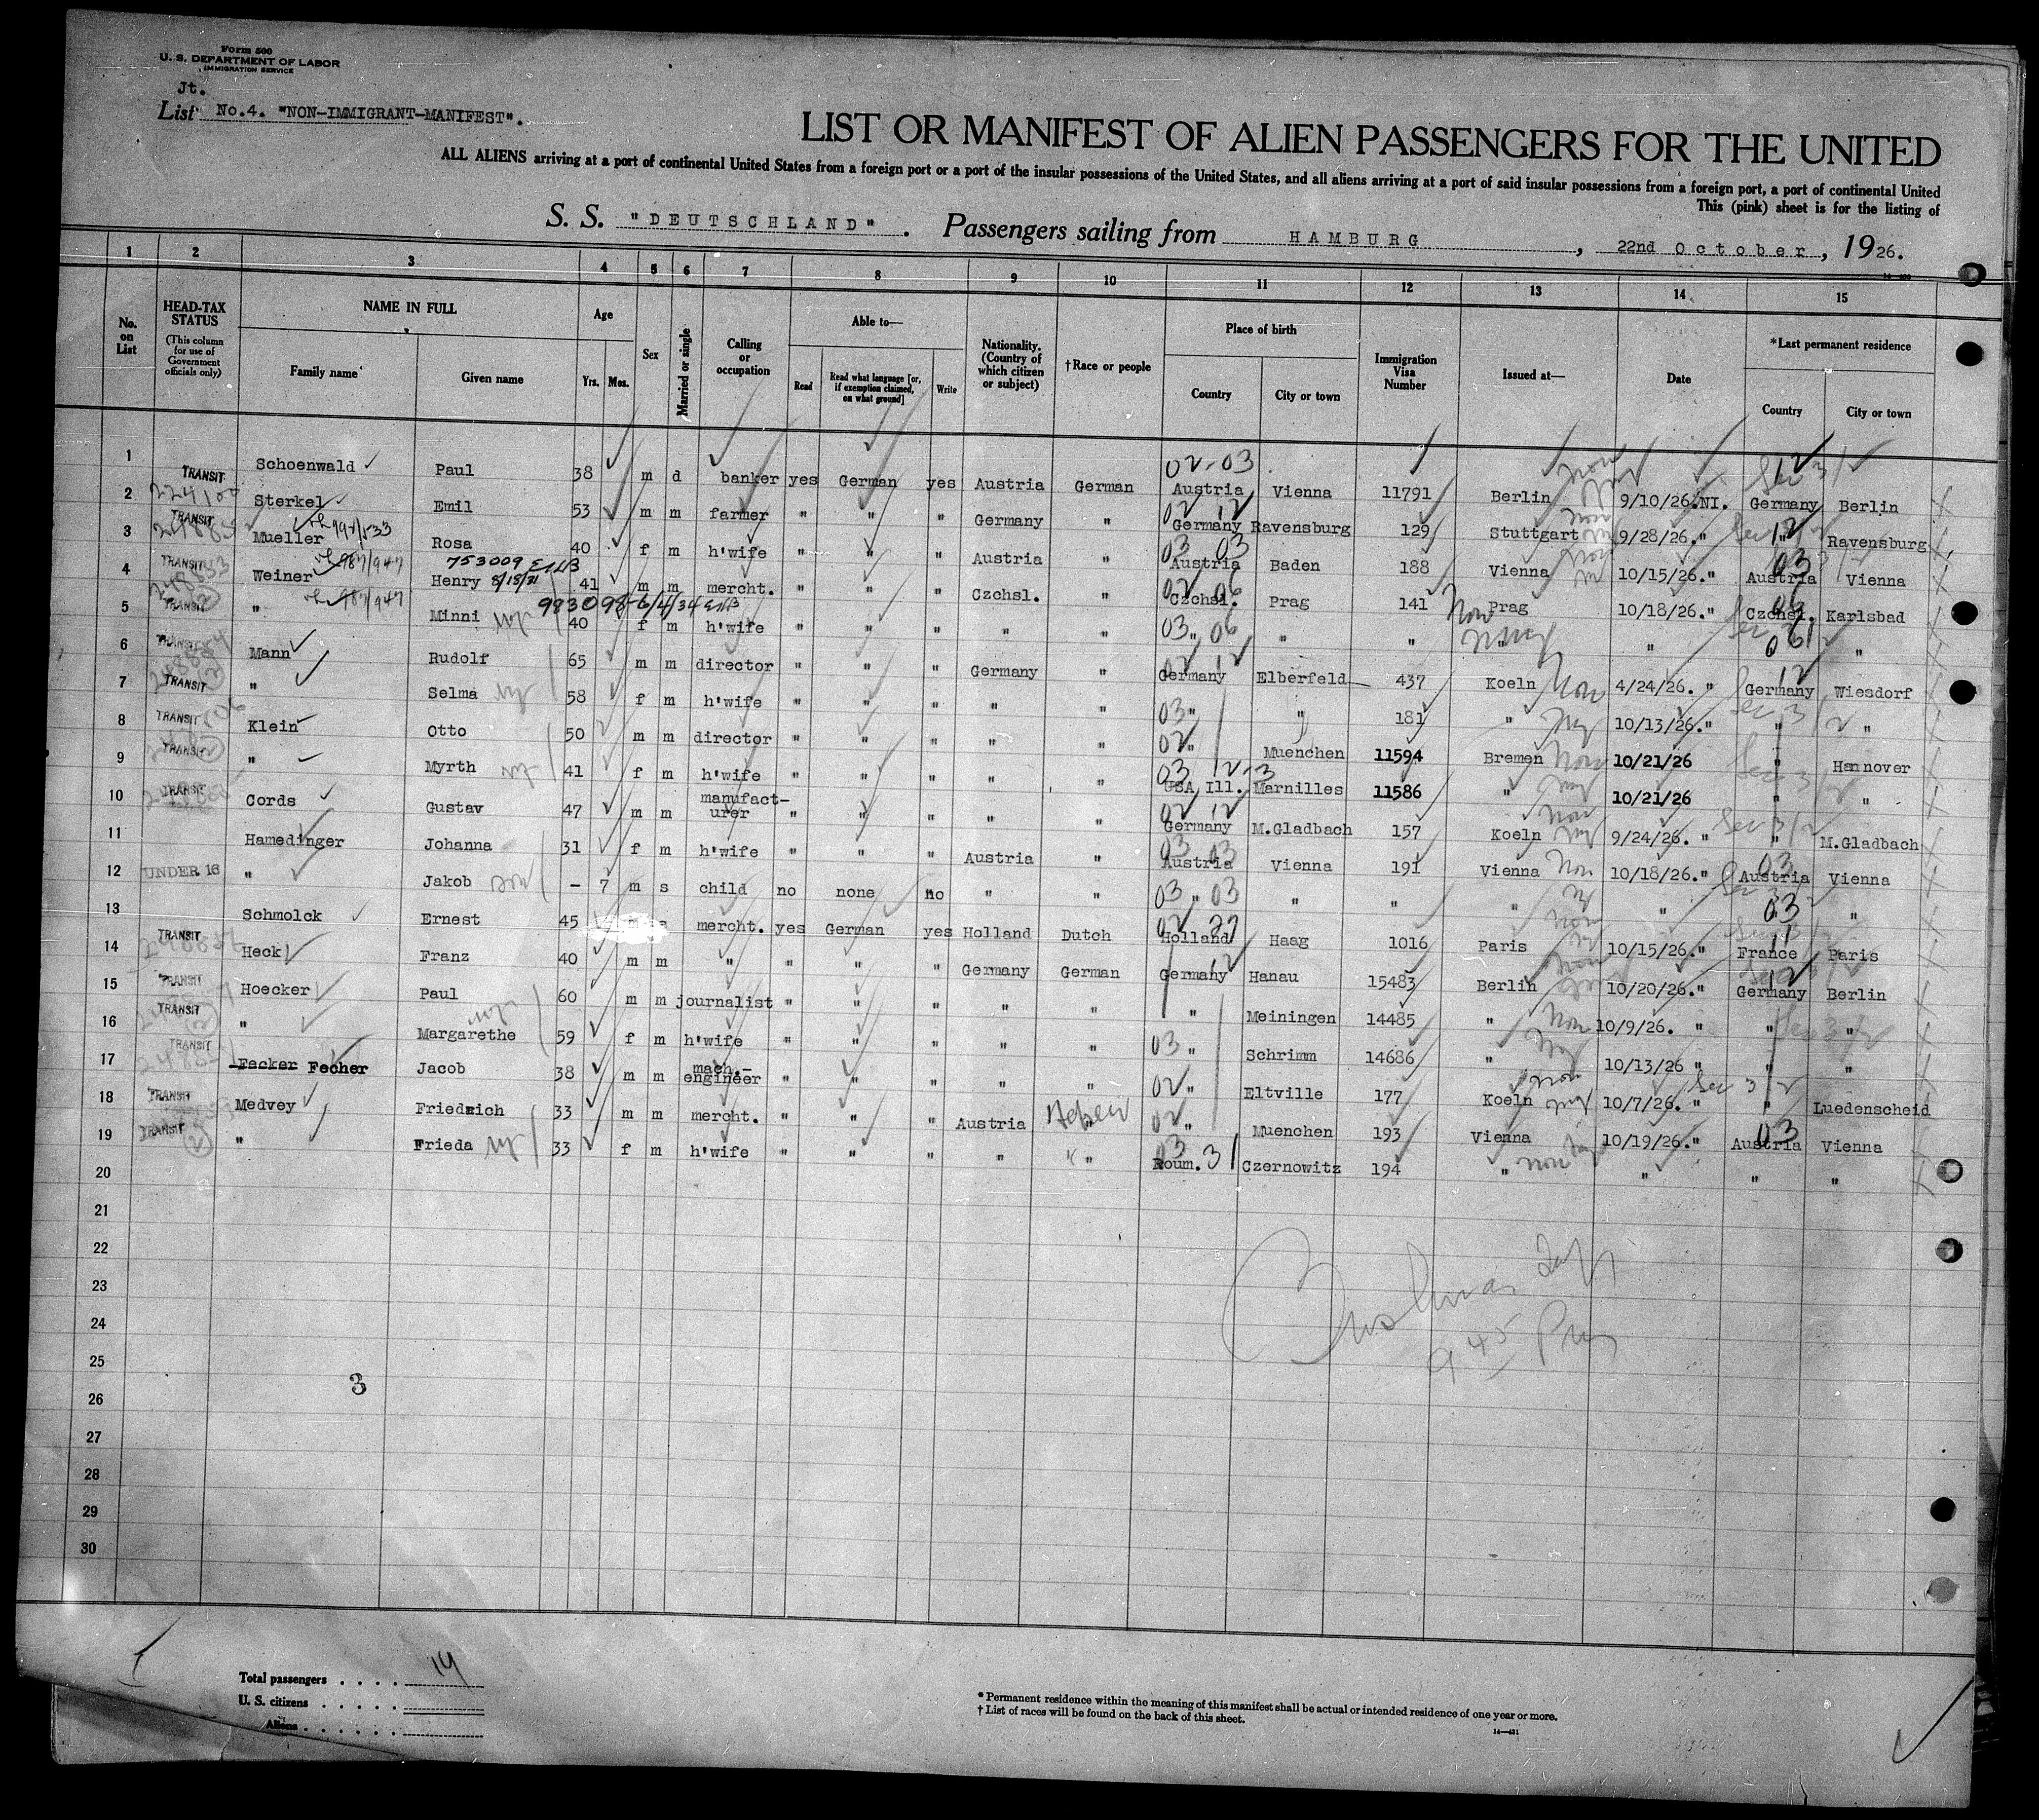 Form 500
U. S. DEPARTMENT OF LABOR
IMMIGRATION SERVICE
Jt.
List No.4. "NON-IMMIGRANT-MANIFEST".
LIST OR MANIFEST OF ALIEN PASSENGERS FOR THE UNITED
ALL ALIENS arriving at a port of continental United States from a foreign port or a port of the insular possessions of the United States, and all aliens arriving at a port of said insular possessions from a foreign port, a port of continental United
This (pink) sheet is for the listing of
S. S. "DEUTSCHLAND". Passengers sailing from HAMBURG, 22nd October, 1926.
1 2 3 4 5 6 7 8 9 10 11 12 13 14 15
No. on List
HEAD-TAX STATUS (This column for use of Government officials only)
NAME IN FULL Family name Given name
Age Yrs. Mos.
Sex
Married or single
Calling or occupation
Able to— Read Read what language [or, if exemption claimed, on what ground] Write
Nationality. (Country of which citizen or subject)
†Race or people
Place of birth Country City or town
Immigration Visa Number
Issued at—
Date
*Last permanent residence Country City or town
1 TRANSIT Schoenwald Paul 38 m d banker yes German yes Austria German 02-03 Austria Vienna 11791 Berlin 9/10/26.NI. 12 Germany Berlin
2 TRANSIT Sterkel Emil 53 m m farmer " " " Germany " 02 12 Germany Ravensburg 129 Stuttgart 9/28/26." 12 " Ravensburg
3 TRANSIT Mueller Rosa 40 f m h'wife " " " Austria " 03 03 Austria Baden 188 Vienna 10/15/26." 03 Austria Vienna
753009
4 TRANSIT Weiner 987/947 Henry 8/18/31 41 m m mercht. " " " Czchsl. " 02 06 Czchsl. Prag 141 Prag 10/18/26." Czchsl. Karlsbad
983098-6/4/34
5 " 987/947 Minni 40 f m h'wife " " " " " 03 " 06 " " " " 06 "
6 TRANSIT Mann Rudolf 65 m m director " " " Germany " 02 12 Germany Elberfeld 437 Koeln Non 4/24/26. " 12 Germany Wiesdorf
7 TRANSIT " Selma 58 f m h'wife " " " " " 03 " " 181 " 10/13/26." " "
8 TRANSIT Klein Otto 50 m m director " " " " " 02 " Muenchen 11594 Bremen Non 10/21/26 " Hannover
9 TRANSIT " Myrth 41 f m h'wife " " " " " 03 USA Ill. Marnilles 11586 " 10/21/26 " "
10 TRANSIT Cords Gustav 47 m m manufact-urer " " " " " 02 12 Germany M.Gladbach 157 Koeln 9/24/26. " " M.Gladbach
11 Hamedinger Johanna 31 f m h'wife " " " Austria " 03 03 Austria Vienna 191 Vienna Non 10/18/26." 03 Austria Vienna
12 UNDER 16 " Jakob son - 7 m s child no none no " " 03 " 03 " " " " 03 "
13 Schmolck Ernest 45 s mercht. yes German yes Holland Dutch 02 27 Holland Haag 1016 Paris 10/15/26." 11 France Paris
14 TRANSIT Heck Franz 40 m m " " " " Germany German 12 Germany Hanau 15483 Berlin 10/20/26." 12 Germany Berlin
15 TRANSIT Hoecker Paul 60 m m journalist " " " " " " Meiningen 14485 " Non 10/9/26. " " "
16 TRANSIT " Margarethe 59 f m h'wife " " " " " 03 " Schrimm 14686 " 10/13/26 " " "
17 TRANSIT Fecker Fecher Jacob 38 m m mach.-engineer " " " " " 02 " Eltville 177 Koeln 10/7/26. " " Luedenscheid
18 TRANSIT Medvey Friedrich 33 m m mercht. " " " Austria Hebrew " 02 " Muenchen 193 Vienna 10/19/26." 03 Austria Vienna
19 TRANSIT " Frieda 33 f m h'wife " " " " " 03 Roum. 31 Czernowitz 194 " " " "
20
21
22
23
24
25
26
27
28
29
30
3
9 45 Pm
Total passengers . . . . 19
U. S. citizens . . . . .
Aliens . . . . . .
* Permanent residence within the meaning of this manifest shall be actual or intended residence of one year or more.
† List of races will be found on the back of this sheet.
14—421